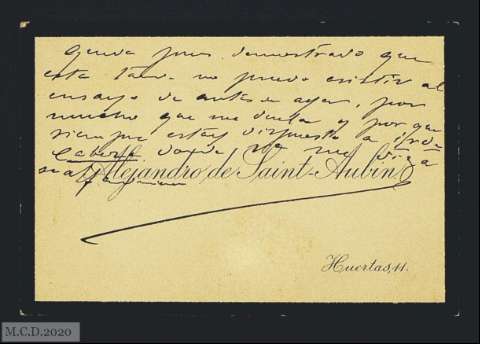 Queda pues demostrado que
esta tarde no puedo asistir al
ensayo de antes de ayer, por
mucho que me duela y por que
siempre estoy dispuesto a
donde me diga
Alejandro de Saint-Aubin
Huertas, 11.
M.C.D.2020